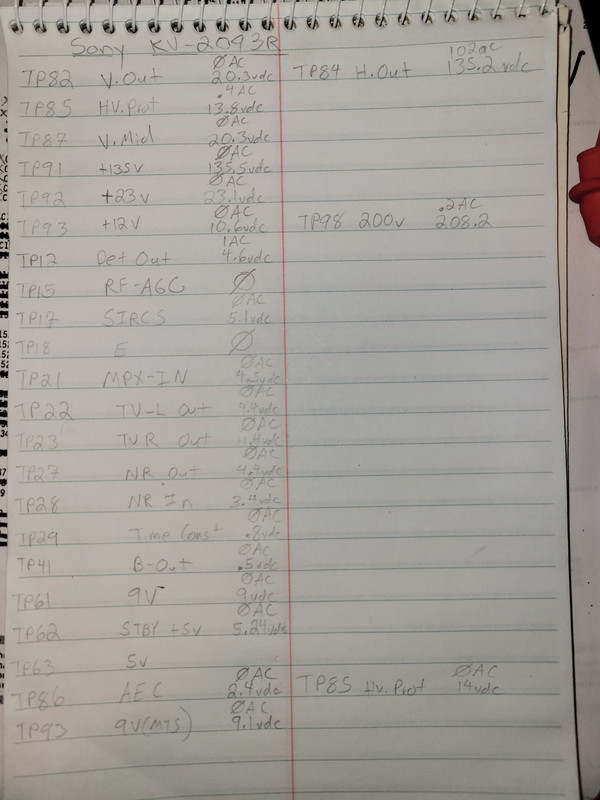 Sony KV-2093R
ØAC 102ac
TP82 V.Out 20.3vdc TP84 H.Out 135.2vdc
.4AC
TP85 HV.Prot 13.8vdc
ØAC
TP87 V.Mid 20.3vdc
ØAC
TP91 +135V 135.5vdc
ØAC
TP92 +23V 23.1vdc
ØAC .2AC
TP93 +12V 10.6vdc TP98 200v 208.2
1AC
TP12 Det Out 4.6vdc
TP15 RF-AGC Ø
ØAC
TP17 SIRCS 5.1vdc
TP18 E Ø
ØAC
TP21 MPX-IN
ØAC
TP22 TV-L Out
ØAC
TP23 TV R Out
ØAC
TP27 NR Out 4.4vdc
ØAC
TP28 NR In 3.4vdc
ØAC
TP29 Time Const .8vdc
ØAC
TP41 B-Out .5vdc
ØAC
TP61 9V 9vdc
ØAC
TP62 STBY +5v 5.24vdc
TP63 5v
ØAC ØAC
TP86 AEC 2.4vdc TP85 Hv. Prot 14vdc
ØAC
TP93 9V(MTS) 9.1vdc